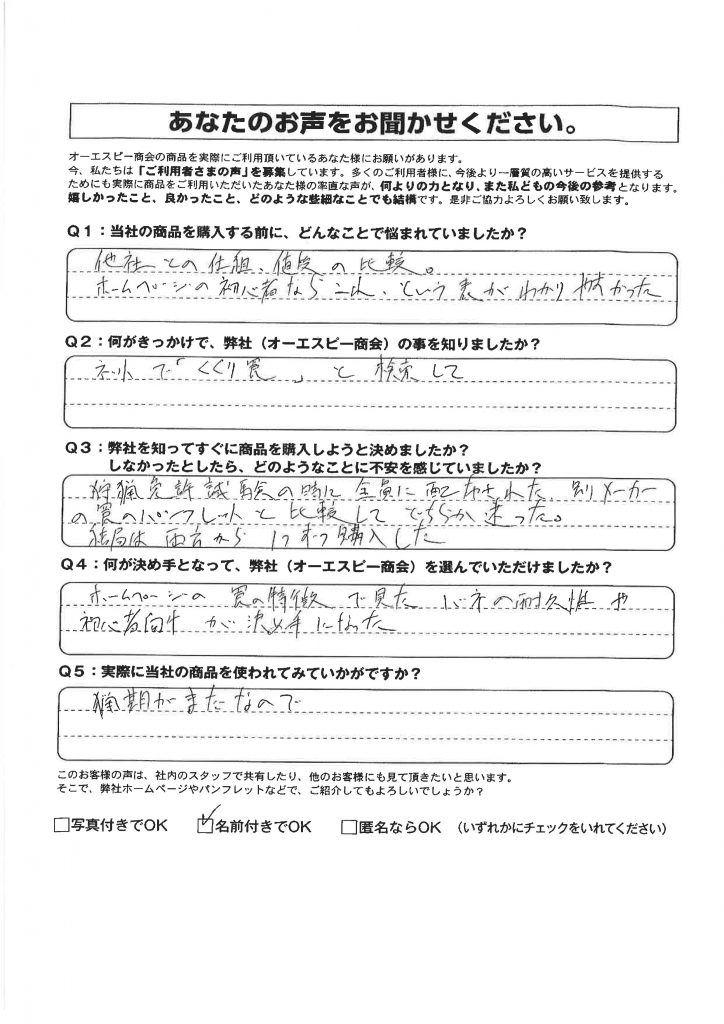 あなたのお声をお聞かせください。
オーエスピー商会の商品を実際にご利用頂いているあなた様にお願いがあります。
今、私たちは「ご利用者さまの声」を募集しています。多くのご利用者様に、今後より一層質の高いサービスを提供する
ためにも実際に商品をご利用いただいたあなた様の率直な声が、何よりの力となり、また私どもの今後の参考となります。
嬉しかったこと、良かったこと、どのような些細なことでも結構です。是非ご協力よろしくお願い致します。
Q1：当社の商品を購入する前に、どんなことで悩まれていましたか？
他社との仕組、値段の比較。
ホームページの初心者ならこれ、という表がわかり やすかった
Q2：何がきっかけで、弊社（オーエスピー商会）の事を知りましたか？
ネットで「くくり罠」と検索して
Q3：弊社を知ってすぐに商品を購入しようと決めましたか？
しなかったとしたら、どのようなことに不安を感じていましたか？
狩猟免許試験の時に全員に配布された、別メーカー
の罠のパンフレットと比較してどちらか迷った。
結局は両者から1つずつ購入した
Q4：何が決め手となって、弊社（オーエスピー商会）を選んでいただけましたか？
ホームページの 罠の特徴 で見た バネの耐久性や
初心者向け が決め手になった
Q5：実際に当社の商品を使われてみていかがですか？
猟期がまだなので
このお客様の声は、社内のスタッフで共有したり、他のお客様にも見て頂きたいと思います。
そこで、弊社ホームページやパンフレットなどで、ご紹介してもよろしいでしょうか？
□写真付きでOK ☑名前付きでOK □匿名ならOK （いずれかにチェックをいれてください）